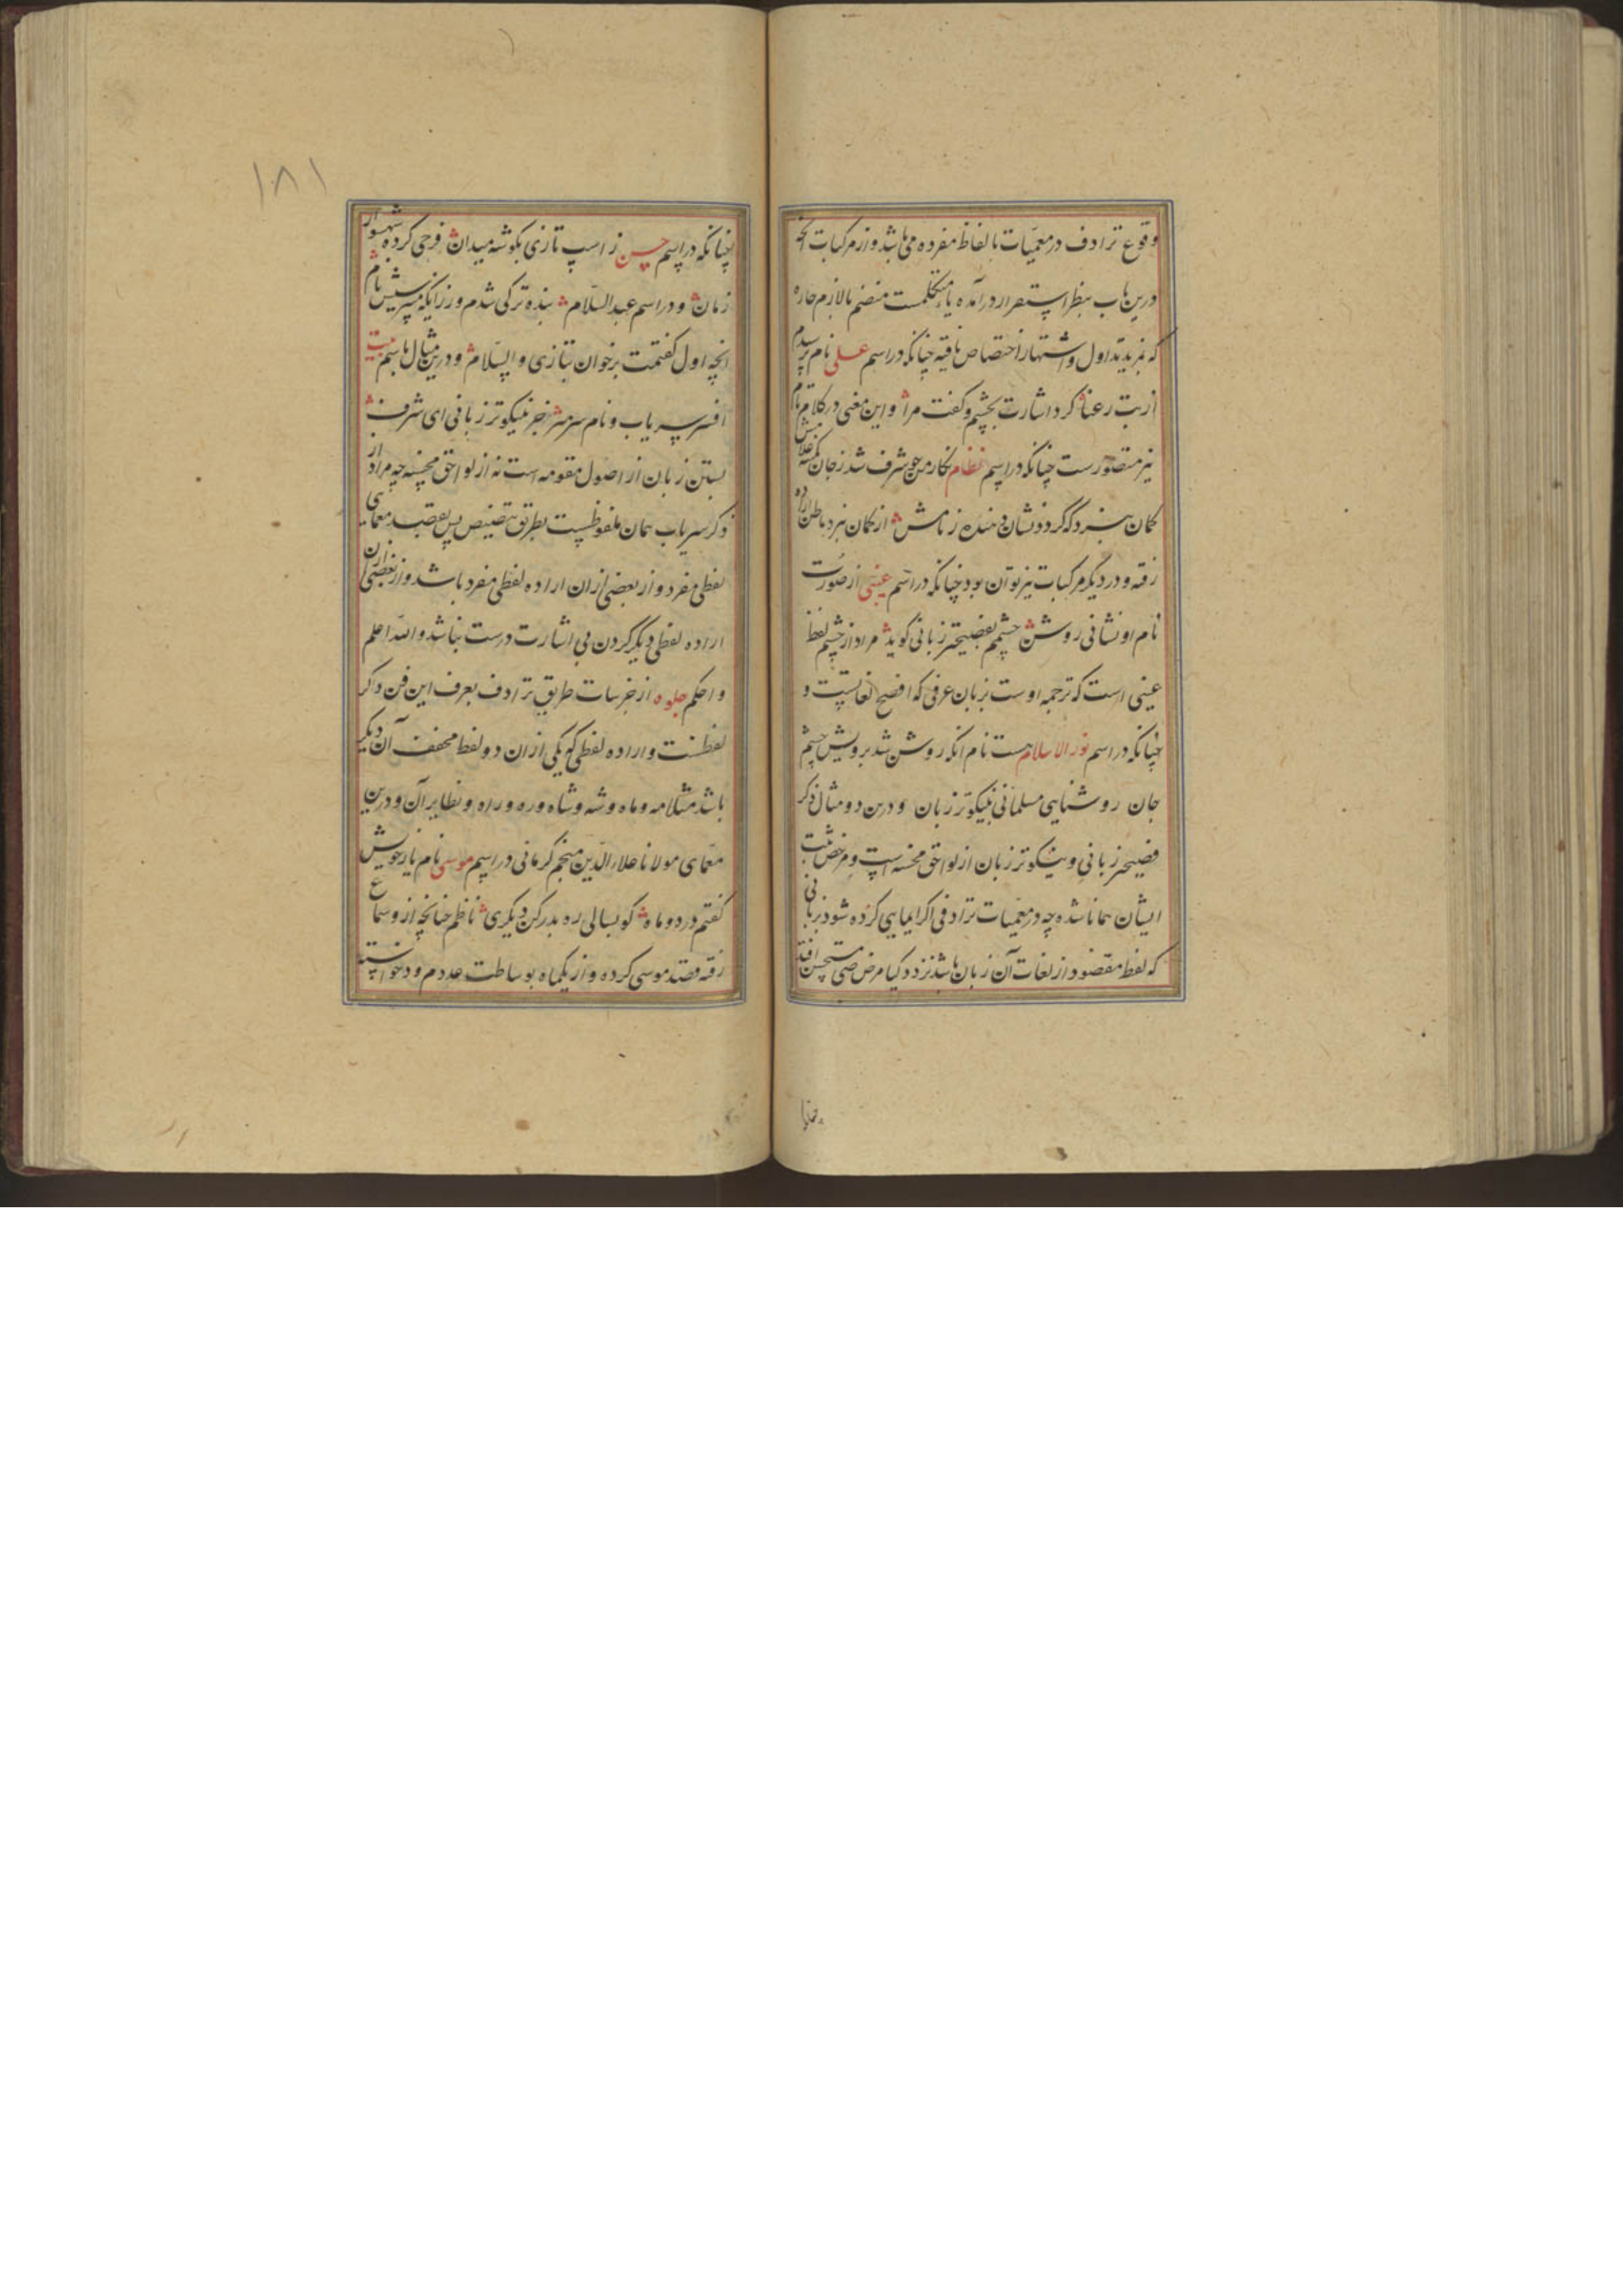 وقوع ترادف در معمیات بالفاظ مفرده می باشد و از مرکبات آنچه
درین باب بنظر استقرار درآمده یاء متکلمست منضم بالازم جاره
که بمزید تداول و اشتهار اختصاص یافته چنانکه در اسم علی نام پرسیدم
از بت رعنا کرد اشارت بچشم و گفت مرا و این معنی در کلام
نیز متصورست چنانکه در اسم نظام نگار من چو شرف شد ز جان کمینه غلامش
کمان نبرد که گردد نشان دهنده ز نامش از کمان نبرد باطن اراده
رفته و در دیگر مرکبات نیز تواند بود چنانکه در اسم عینی از صورت
نام او نشانی روشن چشمم بفصیحتر زبانی گوید مراد از چشمم لفظ
عینی است که ترجمه اوست بزبان عربی که افصح لغاتست و
چنانکه در اسم نور الاسلام هست نام آنکه روشن شد برویش چشم
جان روشنایی مسلمانی بنیکوتر زبان و درین دو مثال ذکر
فصیحتر زبانی و نیکوتر زبان از لواحق محسنه است
ایشان همانا شده چه در معمیات ترادفی اگر ایمایی کرده شود بزبانی
که لفظ مقصود از لغات آن زبان باشد نزد مستحسن افتد
۱۸۱
چنانکه در اسم حسن ز اسپ تازی بگوشه میدان فرجی کرده شهسوار
زمان و در اسم عبد السلام بنده ترکی شدم ور زانکه می پرسیش نام
آنچه اول گفتمت برخوان بتازی و السلام و درین مثال باسم
افسر سر یاب و نام سرمرا جز بنیکوتر زبانی ای شرف
بستن زبان از اصول مقومه است نه از لواحق محسنه چه مراد از
ذکر سریاب همان ملفوظست بطریق تنصیص پس بقصد معمای
لفظی مفرد و از بعضی از آن اراده لفظی مفرد باشد و از بعضی از آن
اراده لفظی دیگر کردن بی اشارت درست نباشد و الله اعلم
و احکم جلوه از جزئیات طریق ترادف بعرف این فن ذکر
لفظست و اراده لفظی که یکی از آن دو لفظ مخفف آن دیگر
باشد مثلا مه و ماه و شه و شاه و ره و راه و نظایر آن و درین
معمای مولانا علاء الدین منجم کرمانی در اسم موسی نام یار خویش
گفتم در دو ماه کو بسالی ره بدر کن دیگری ناظم چنانچه از سماع
رفته قصد موسی کرده و از یکماه بوساطت عدد م و د خواسته
چنانکه